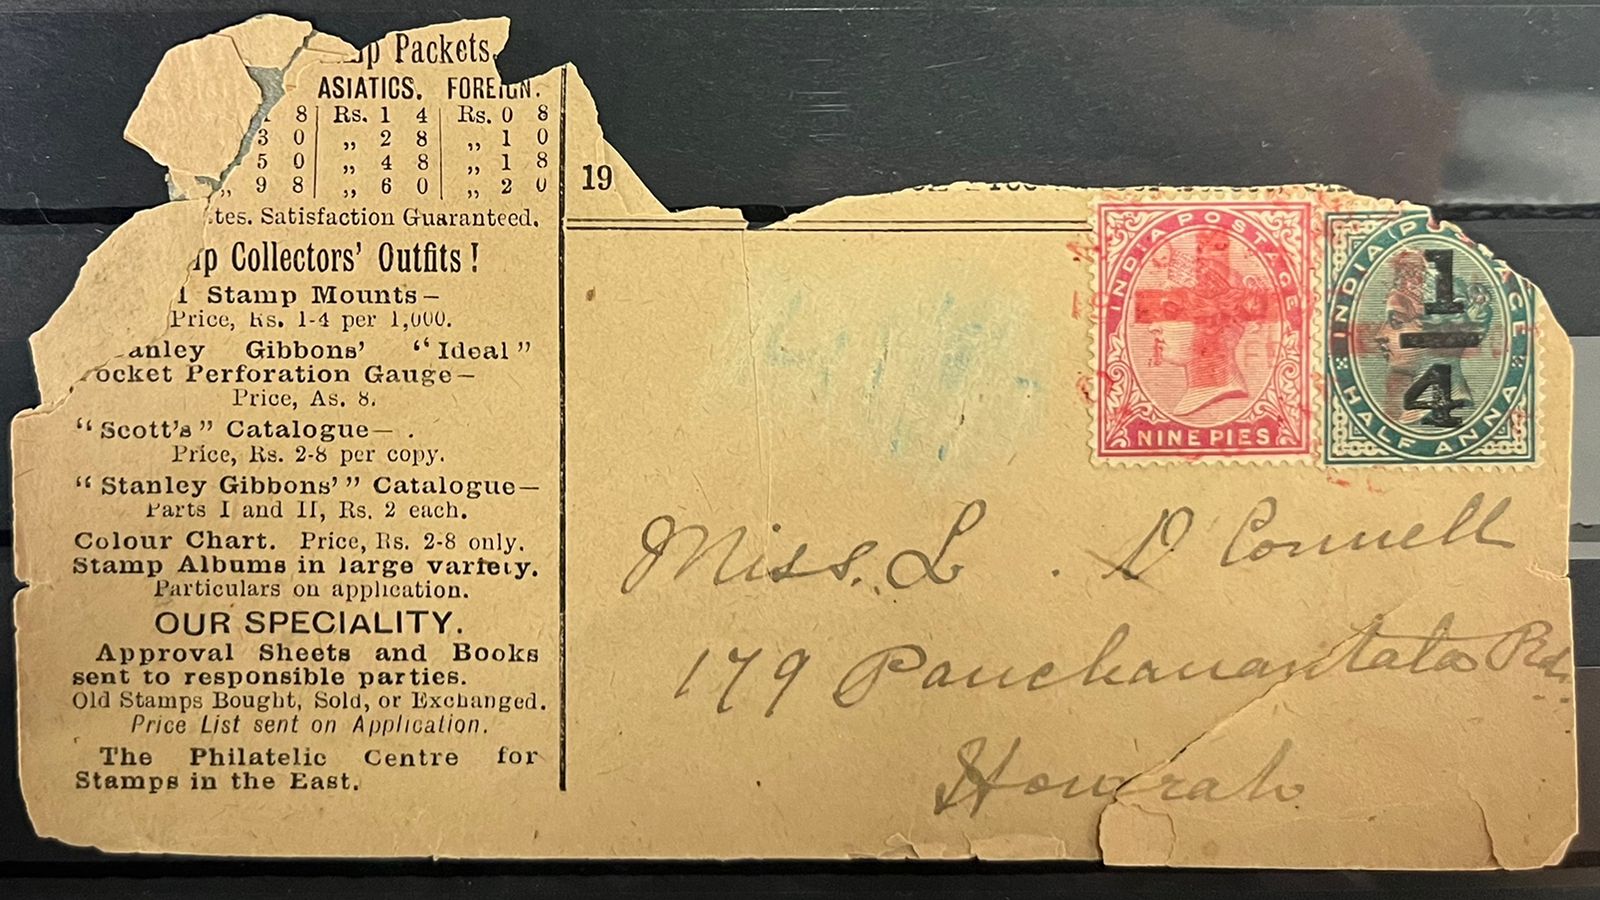 Packets.
ASIATICS. FOREIGN.
8 Rs. 1 4 Rs. 0 8
3 0 ,, 2 8 ,, 1 0
5 0 ,, 4 8 ,, 1 8
,, 9 8 ,, 6 0 ,, 2 0
Satisfaction Guaranteed.
Collectors' Outfits !
Stamp Mounts—
Price, Rs. 1-4 per 1,000.
Gibbons' "Ideal"
Perforation Gauge—
Price, As. 8.
"Scott's" Catalogue— .
Price, Rs. 2-8 per copy.
"Stanley Gibbons'" Catalogue—
Parts I and II, Rs. 2 each.
Colour Chart. Price, Rs. 2-8 only.
Stamp Albums in large variety.
Particulars on application.
OUR SPECIALITY.
Approval Sheets and Books
sent to responsible parties.
Old Stamps Bought, Sold, or Exchanged.
Price List sent on Application.
The Philatelic Centre for
Stamps in the East.
19
INDIA POSTAGE
NINE PIES
INDIA POSTAGE
HALF ANNA
1
4
Miss. L. D Connell
179 Panchanantala Rd.
Howrah